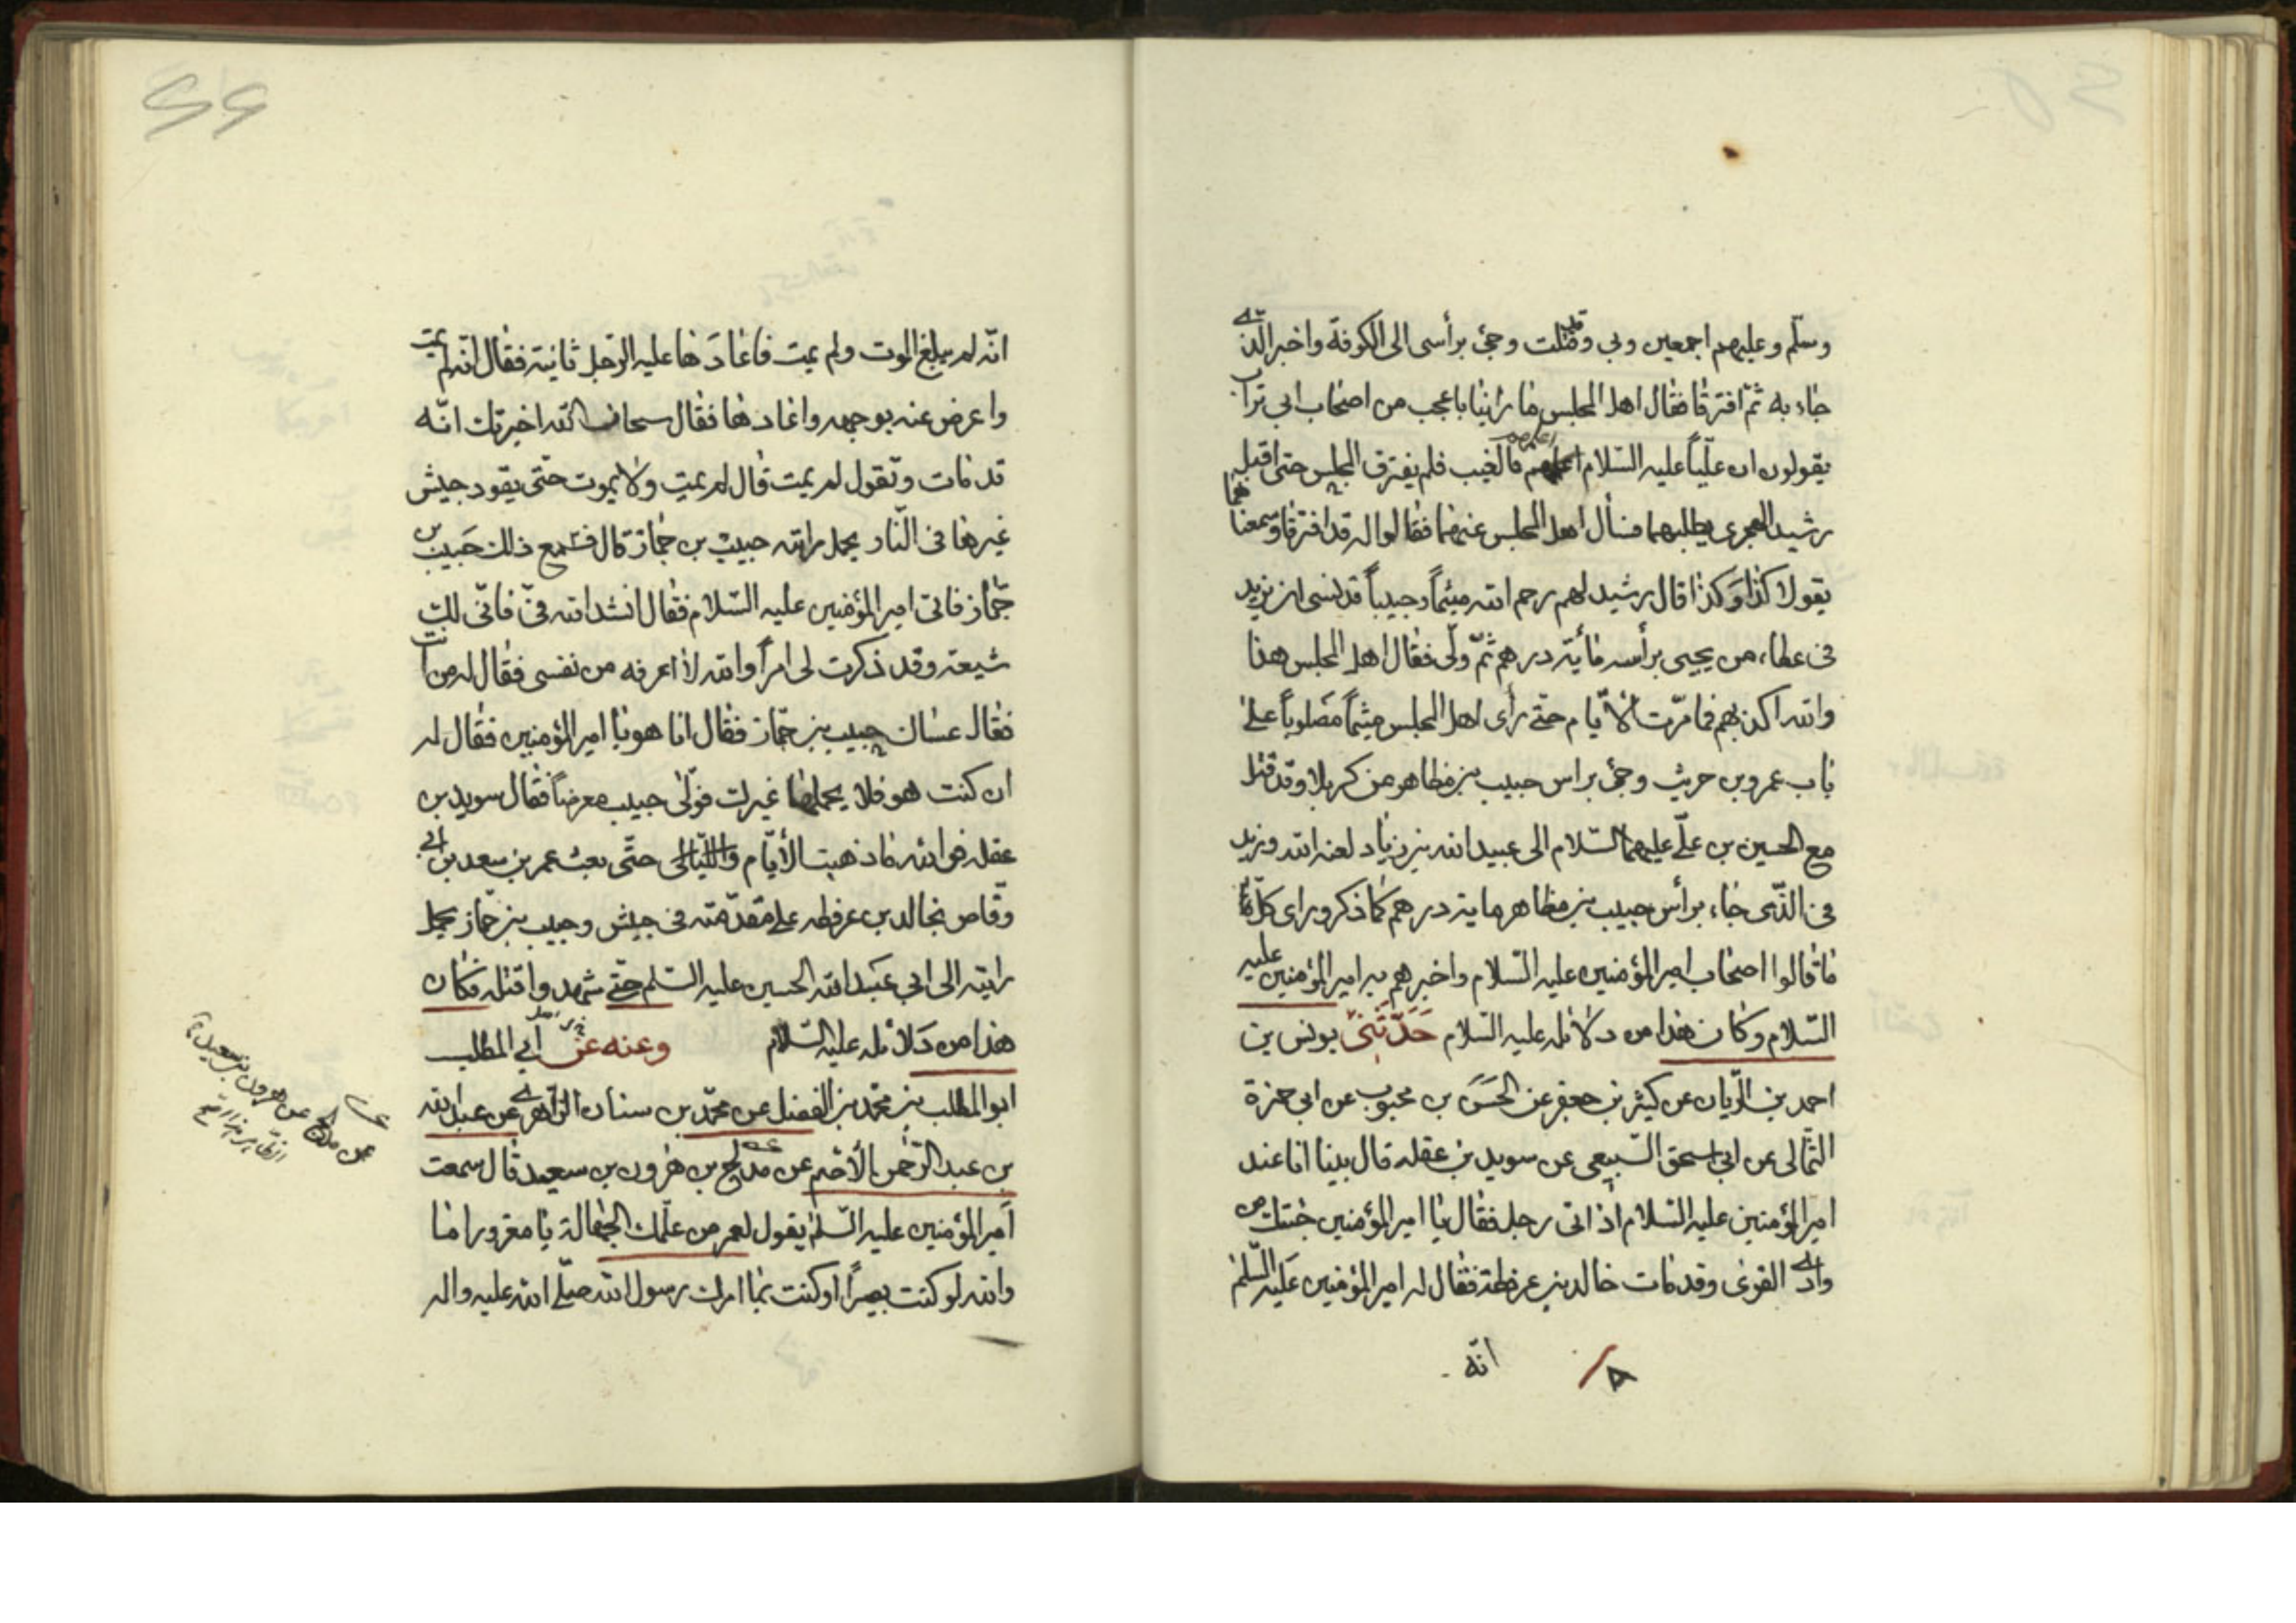 وسلّم وعليهم اجمعين وبي وقد قتلت وجئ برأسى الى الكوفة واخبر الّذى
جاء به ثمّ افترقا فقال اهل المجلس ما رأينا باعجب من اصحاب ابى تراب
يقولون ان عليّاً عليه السّلام اعلمهم بالغيب فلم يفترق المجلس حتى اقبل
رشيد الهجرى يطلبهما فسأل اهل المجلس عنهما فقالوا له قد افترقا وسمعناهما
يقولا كذا وكذا قال رشيد لهم رحم الله ميثماً وحبيباً قد نسى ان يزيد
فى عطاء من يجيى برأسه مأية درهم ثمّ ولّى فقال اهل المجلس هذا
والله اكذبهم فما مرّت الأيّام حتى رأى اهل المجلس ميثماً مصلوباً على
باب عمرو بن حريث وجئ براس حبيب بن مظاهر من كربلا وقد قتل
مع الحسين بن علّى عليهما السّلام الى عبيد الله بن زياد لعنه الله ويزيد
فى الذّى جاء برأس حبيب بن مظاهر ماية درهم كما ذكر وراى كلّما
ما قالوا اصحاب امير المؤمنين عليه السّلام واخبرهم به امير المؤمنين عليه
السّلام وكان هذا من دلائله عليه السّلام حَدّثَنى يونس بن
احمد بن الرّيان عن كثير بن جعفر عن الحَسَن بن محبوب عن ابى حمزة
الثّمالى عن ابى اسحق السّبيعى عن سويد بن غفله قال بينا انا عند
امير المؤمنين عليه السّلام اذ اتى رجل فقال يا امير المؤمنين جئتك من
وادى القرى وقد مات خالد بن عرفطة فقال له امير المؤمنين عَليه السّلم
انّه
انّه لم يبلغ الموت ولم يمت فاعَادَها عليه الرّجل ثانية فقال انّه لم يمت
واعرض عنه بوجهه واعادها فقال سبحان الله اخبرتك انّه
قد مات وتقول لم يمت قال لم يمت ولا يموت حتّى يقود جيش
غيرها فى النّار يحمل رايته حبيب بن جمّاز قال فسمع ذلك حَبيب بن
جمّاز فاتى امير المؤمنين عليه السّلام فقال انشد الله فىّ فانّى لك
شيعته وقد ذكرت لى امراً والله لا اعرفه من نفسى فقال له من انت
فقال حبيب بن جمّاز فقال انا هو يا امير المؤمنين فقال له
ان كنت هو فلا يحملها غيرك فولّى حبيب معرضاً فقال سويد بن
غفله فو الله ما ذهبت الأيّام واللّيالى حتّى بعث عمر بن سعد بن ابى
وقّاص بخالد بن عرفطه على مقدّمته فى جيش وحبيب بن جمّاز يحمل
رايته الى ابى عَبد الله الحسين عليه السّلم حتّى شهد واقتله فكان
هذا من دَلائله عليه السّلام وعنه عن ابى المطلب
ابو المطلب بن محمّد بن الفضل عن محمّد بن سنان الزّاهرى عن عبد الله
بن عبد الرّحمن الأصّم عن مدلج بن هرون بن سعيد قال سمعت
أمير المؤمنين عليه السّلم يقول لعمر من علّمك الجهالة يا مغرور اما
والله لو كنت بصيراً او كنت بما امرك رسول الله صلّى الله عليه واله
عن مدلج عن هرون بن سعيد